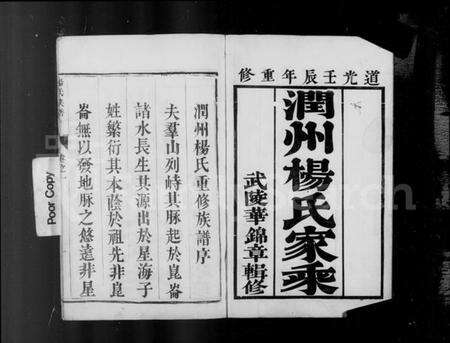 道光壬辰年重修
潤州楊氏家乘
武陵華錦章輯修
潤州楊氏重修族譜序
夫羣山列峙其脉起於崑崙
諸水長生其源出於星海子
姓繁衍其本蔭於祖先非崑
崙無以發地脉之悠遠非星
Poor Copy